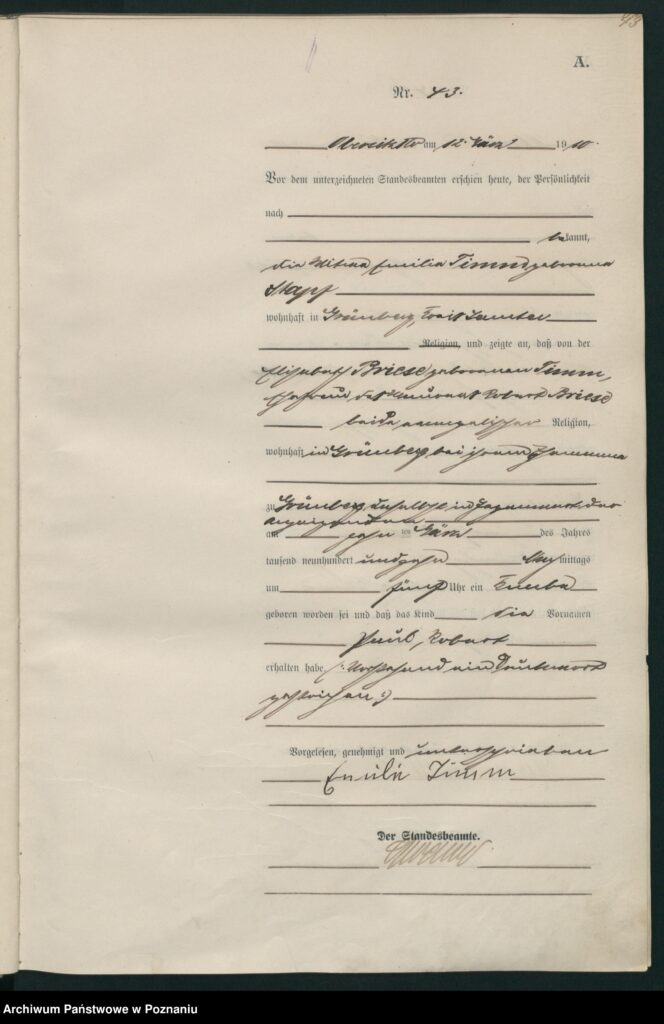 43
A.
Nr. 43.
am 12. März 1910.
Vor dem unterzeichneten Standesbeamten erschien heute, der Persönlichkeit
nach
bekannt,
die Witwe Emilie Timm geborene
Stapf
wohnhaft in Grünberg, Kreis Samter
Religion, und zeigte an, daß von der
Elisabeth Briese geborenen Timm,
Ehefrau des Maurers Robert Briese
beide evangelischer Religion,
wohnhaft in Grünberg bei ihrem Ehemanne
zu Grünberg daselbst in Gegenwart der
Anzeigenden
am zehn ten März des Jahres
tausend neunhundert und zehn Nachmittags
um fünf Uhr ein Knabe
geboren worden sei und daß das Kind die Vornamen
Paul, Robert
erhalten habe (: Vorstehend ein Druckwort
gestrichen :)
Vorgelesen, genehmigt und unterschrieben
Emilie Timm
Der Standesbeamte.
Archiwum Państwowe w Poznaniu